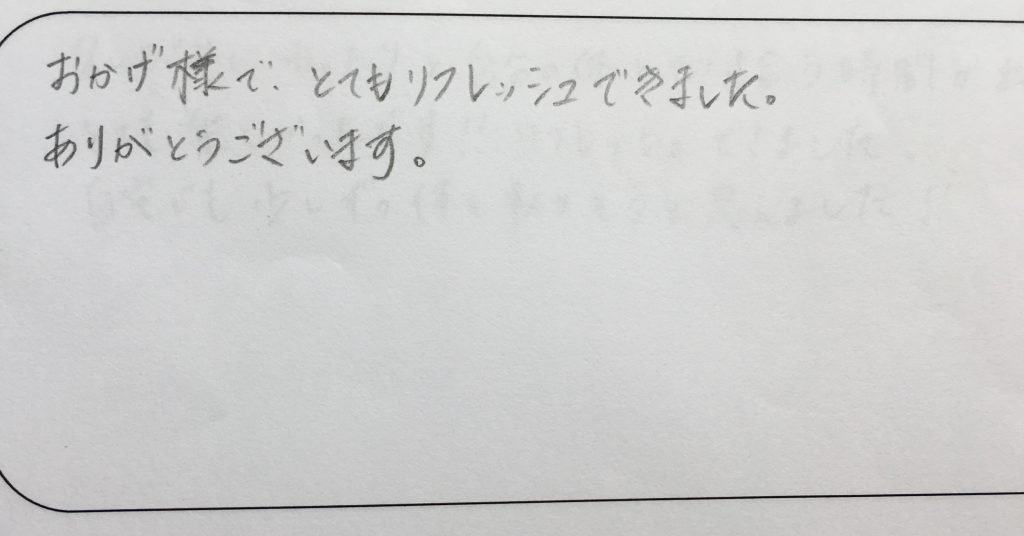 おかげ様で、とてもリフレッシュできました。
ありがとうございます。